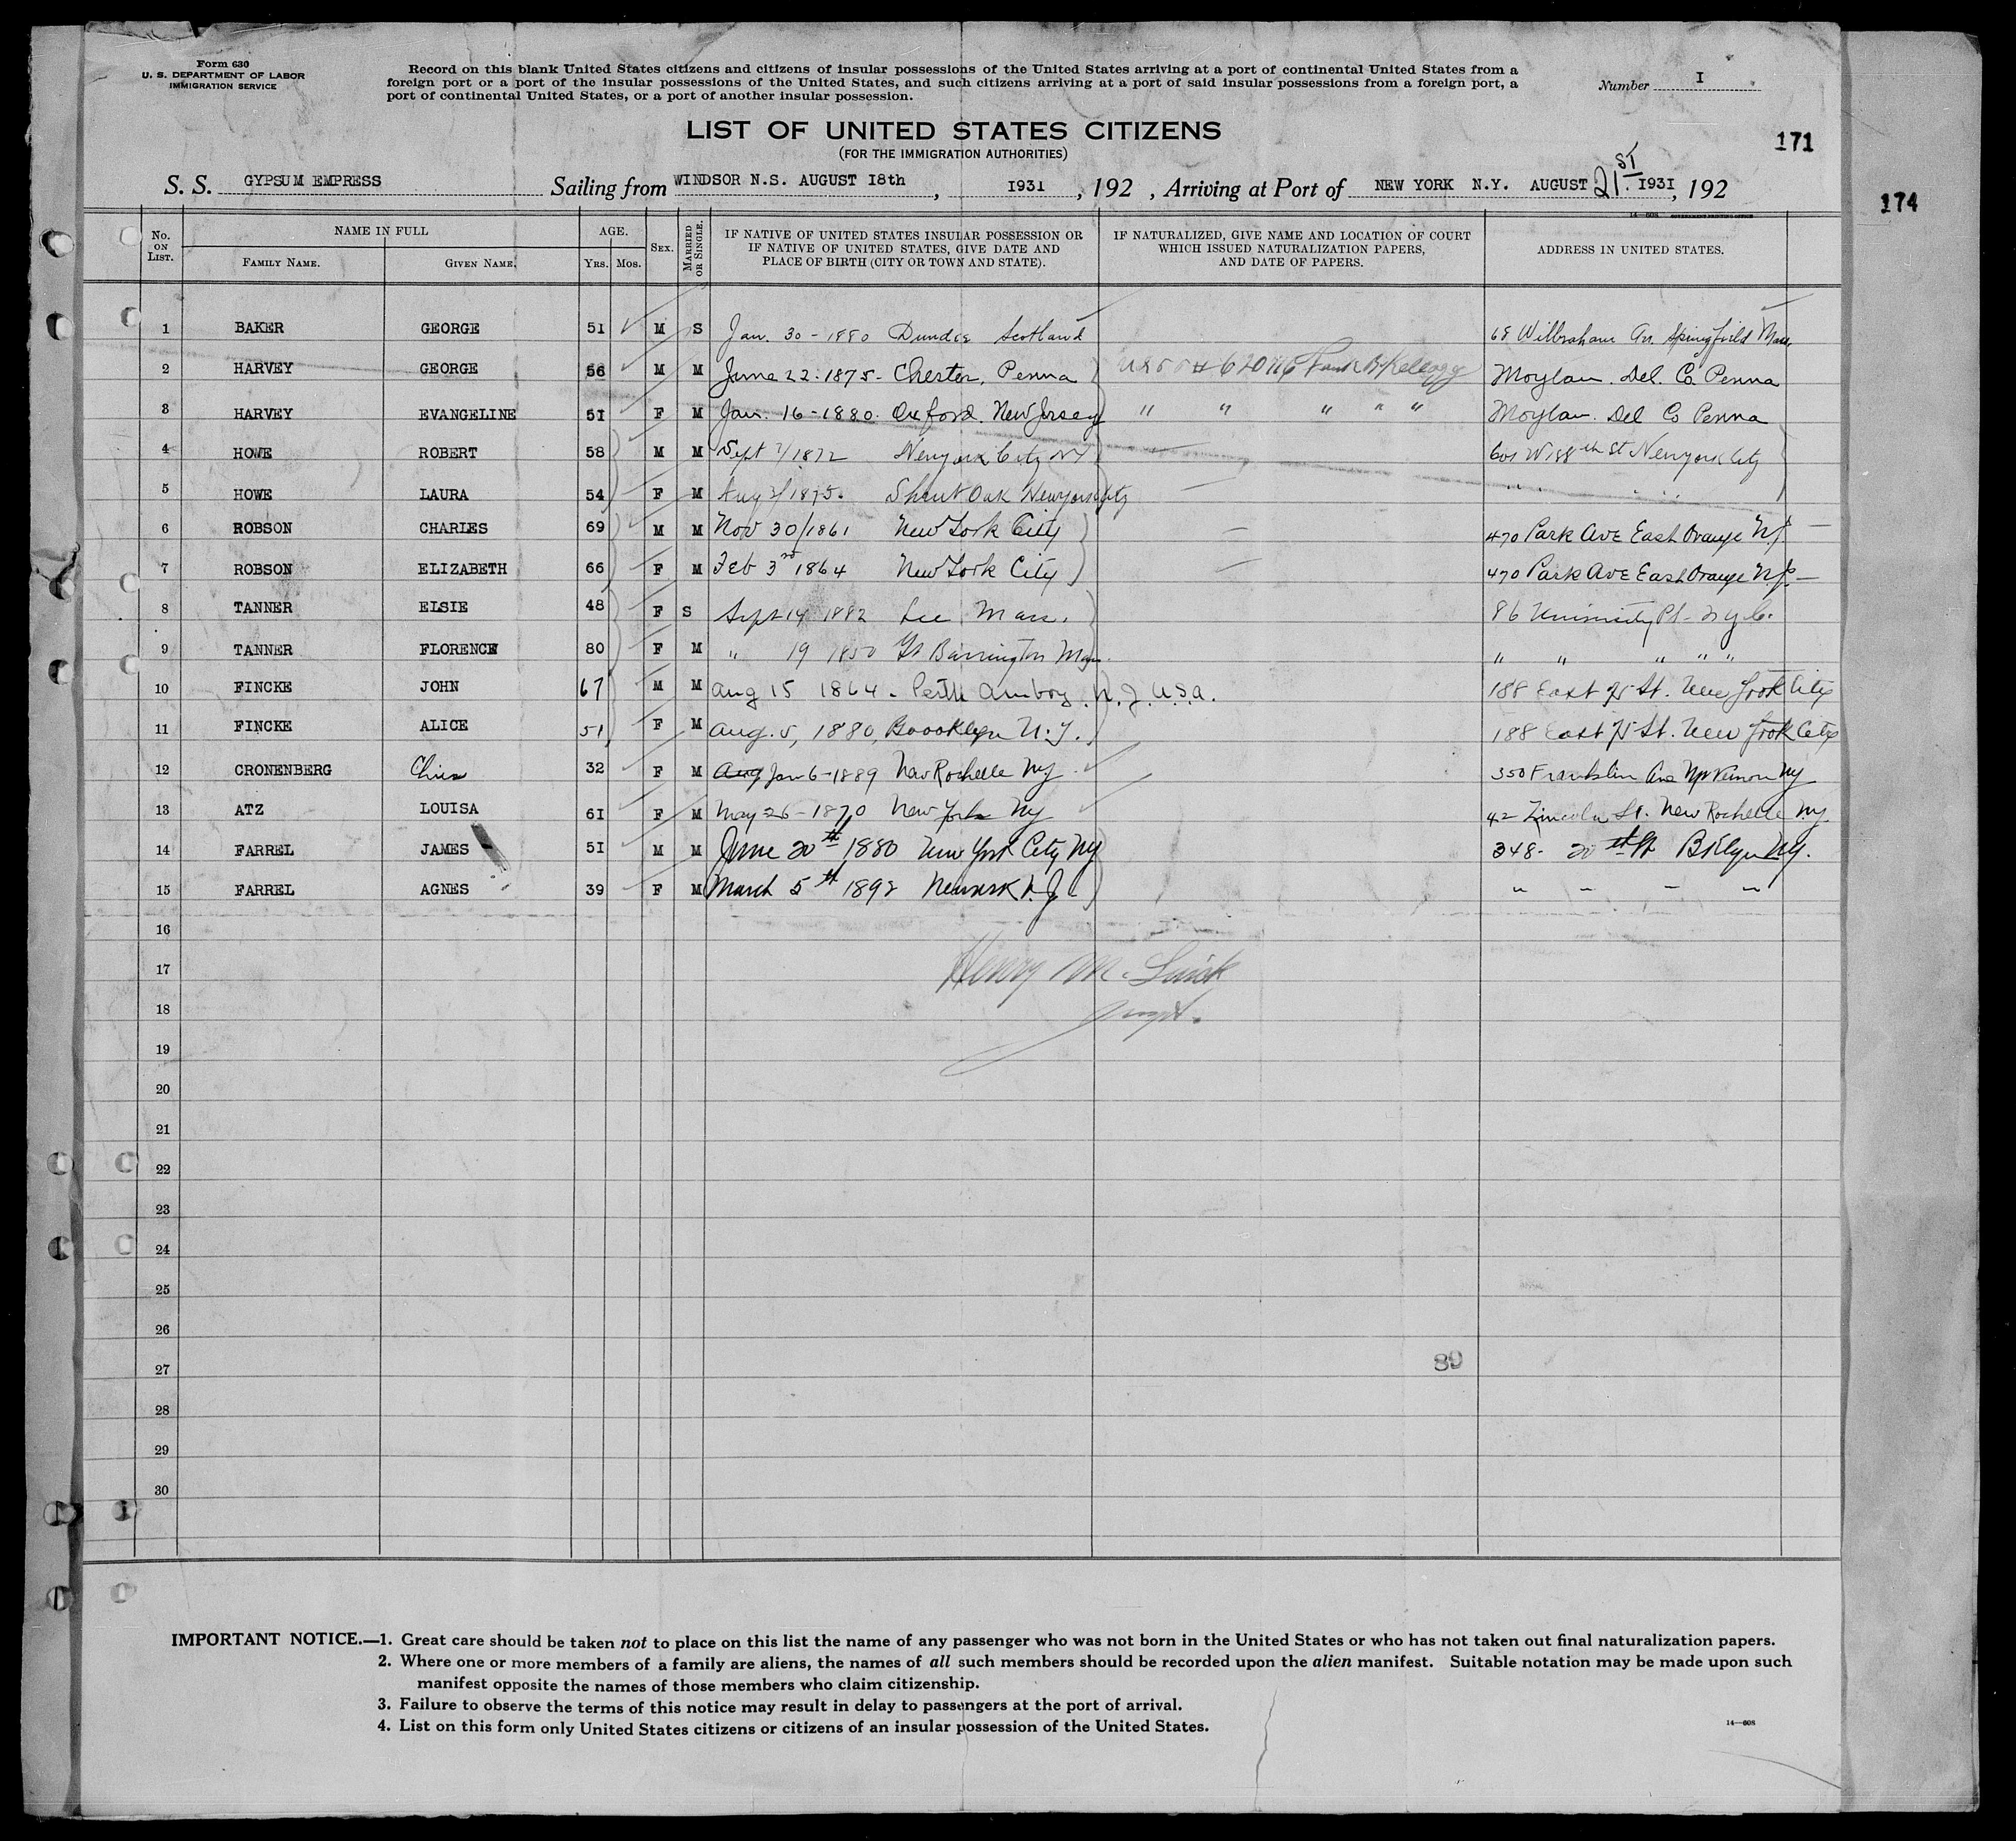 Form 630
U. S. DEPARTMENT OF LABOR
IMMIGRATION SERVICE
Record on this blank United States citizens and citizens of insular possessions of the United States arriving at a port of continental United States from a
foreign port or a port of the insular possessions of the United States, and such citizens arriving at a port of said insular possessions from a foreign port, a
port of continental United States, or a port of another insular possession.
Number I
LIST OF UNITED STATES CITIZENS
(FOR THE IMMIGRATION AUTHORITIES)
171
174
S. S. GYPSUM EMPRESS Sailing from WINDSOR N.S. AUGUST 18th, 1931, 192 , Arriving at Port of NEW YORK N.Y. AUGUST 21ST. 1931, 192
14—608 GOVERNMENT PRINTING OFFICE
No. ON LIST. NAME IN FULL FAMILY NAME. GIVEN NAME. AGE. YRS. MOS. SEX. MARRIED OR SINGLE. IF NATIVE OF UNITED STATES INSULAR POSSESSION OR IF NATIVE OF UNITED STATES, GIVE DATE AND PLACE OF BIRTH (CITY OR TOWN AND STATE). IF NATURALIZED, GIVE NAME AND LOCATION OF COURT WHICH ISSUED NATURALIZATION PAPERS, AND DATE OF PAPERS. ADDRESS IN UNITED STATES.
1 BAKER GEORGE 51 M S Jan. 30 - 1880 Dundee Scotland 68 Wilbraham Av. Springfield Mass.
2 HARVEY GEORGE 56 M M June 22. 1875 - Chester, Penna Frank B Kellogg Moylan. Del. Co. Penna
3 HARVEY EVANGELINE 51 F M Jan. 16 - 1880. Oxford. New Jersey " " " " " Moylan. Del Co Penna
4 HOWE ROBERT 58 M M Sept 1872 Newyork City NY 601 W 188th St Newyork City
5 HOWE LAURA 54 F M Aug 1875. Oak Newyork City " " " "
6 ROBSON CHARLES 69 M M Nov 30/1861 New York City 470 Park Ave East Orange N.J.
7 ROBSON ELIZABETH 66 F M Feb 3rd 1864 New York City 470 Park Ave East Orange N.J.
8 TANNER ELSIE 48 F S Sept 14 1882 Lee Mass. 86 University Pl - N.Y.C.
9 TANNER FLORENCE 80 F M " 19 1850 Gt Barrington Mass. " " " " "
10 FINCKE JOHN 67 M M Aug 15 1864 - Perth Amboy. N.J. U.S.A. 188 East 75 St. New York City
11 FINCKE ALICE 51 F M Aug. 5, 1880, Brooklyn N.Y. 188 East 75 St. New York City
12 CRONENBERG 32 F M Aug Jan 6 - 1889 New Rochelle NY 350 Franklin Ave Mt Vernon NY
13 ATZ LOUISA 61 F M May 26 - 1870 New York NY 42 Lincoln St. New Rochelle NY.
14 FARREL JAMES 51 M M June 20th 1880 New York City NY 348 - 20th St Bklyn N.Y.
15 FARREL AGNES 39 F M March 5th 1892 Newark N.J. " " " "
16
17 Henry M.
18
19
20
21
22
23
24
25
26
27
80
28
29
30
IMPORTANT NOTICE.—1. Great care should be taken not to place on this list the name of any passenger who was not born in the United States or who has not taken out final naturalization papers.
2. Where one or more members of a family are aliens, the names of all such members should be recorded upon the alien manifest. Suitable notation may be made upon such
manifest opposite the names of those members who claim citizenship.
3. Failure to observe the terms of this notice may result in delay to passengers at the port of arrival.
4. List on this form only United States citizens or citizens of an insular possession of the United States.
14—608